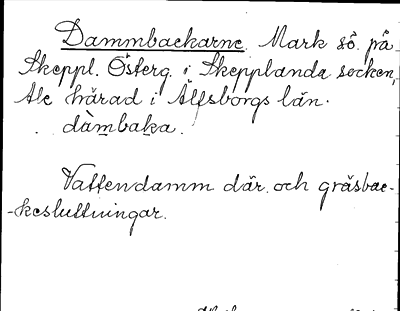 Dammbackarne. Mark sö. på
Skeppl. Österg. i Skepplanda socken,
Ale härad i Älfsborgs län.
dàmbaka.
Vattendamm där och gräsbac-
-kesluttningar.